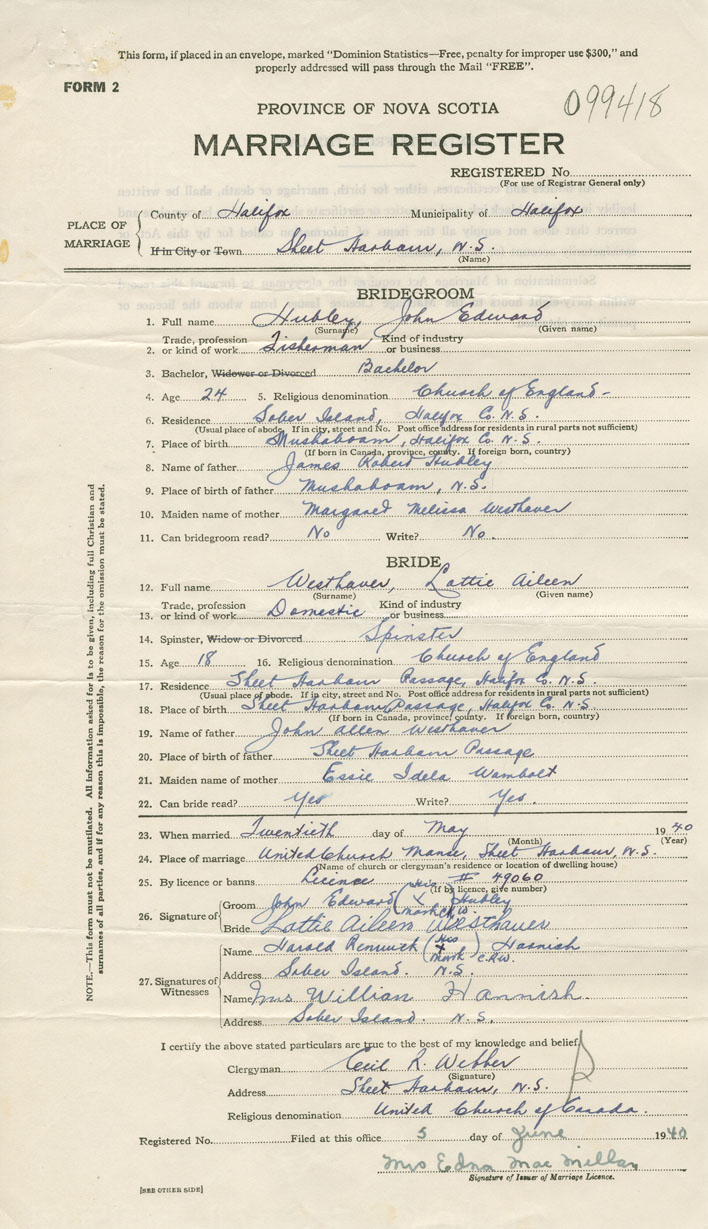 This form, if placed in an envelope, marked "Dominion Statistics—Free, penalty for improper use $300," and
properly addressed will pass through the Mail "FREE".
FORM 2
099418
PROVINCE OF NOVA SCOTIA
MARRIAGE REGISTER
REGISTERED No.
(For use of Registrar General only)
PLACE OF MARRIAGE
County of Halifax Municipality of Halifax
If in City or Town Sheet Harbour, N.S.
(Name)
BRIDEGROOM
1. Full name Hubley, John Edward
(Surname) (Given name)
2. Trade, profession or kind of work Fisherman Kind of industry or business
3. Bachelor, Widower or Divorced Bachelor
4. Age 24 5. Religious denomination Church of England-
6. Residence Sober Island, Halifax Co. N.S.
(Usual place of abode. If in city, street and No. Post office address for residents in rural parts not sufficient)
7. Place of birth Mushaboom, Halifax Co. N.S.
(If born in Canada, province, county. If foreign born, country)
8. Name of father James Robert Hubley
9. Place of birth of father Mushaboom, N.S.
10. Maiden name of mother Margaret Melissa Westhaver
11. Can bridegroom read? No Write? No.
BRIDE
12. Full name Westhaver, Lottie Aileen
(Surname) (Given name)
13. Trade, profession or kind of work Domestic Kind of industry or business
14. Spinster, Widow or Divorced Spinster
15. Age 18 16. Religious denomination Church of England
17. Residence Sheet Harbour Passage, Halifax Co. N.S.
(Usual place of abode. If in city, street and No. Post office address for residents in rural parts not sufficient)
18. Place of birth Sheet Harbour Passage, Halifax Co. N.S
(If born in Canada, province, county. If foreign born, country)
19. Name of father John Allen Westhaver
20. Place of birth of father Sheet Harbour Passage
21. Maiden name of mother Essie Idela Wambolt
22. Can bride read? Yes Write? Yes.
23. When married Twentieth day of May 1940
(Month) (Year)
24. Place of marriage United Church Manse, Sheet Harbour, N.S.
(Name of church or clergyman's residence or location of dwelling house)
25. By licence or banns Licence # 49060
(If by licence, give number)
26. Signature of
Groom John Edward (his X mark) Hubley
Bride Lottie Aileen Westhaver
27. Signatures of Witnesses
Name Harold (his X mark) Hannish C.R.W.
Address Sober Island. N.S.
Name Mrs William Hannish.
Address Sober Island. N.S.
I certify the above stated particulars are true to the best of my knowledge and belief.
Clergyman Cecil R. Webber
(Signature)
Address Sheet Harbour, N.S.
Religious denomination United Church of Canada.
Registered No. Filed at this office 5 day of June 1940
Mrs Edna MacMillan
Signature of Issuer of Marriage Licence.
[SEE OTHER SIDE]
NOTE.—This form must not be mutilated. All information asked for is to be given, including full Christian and
surnames of all parties, and if for any reason this is impossible, the reason for the omission must be stated.